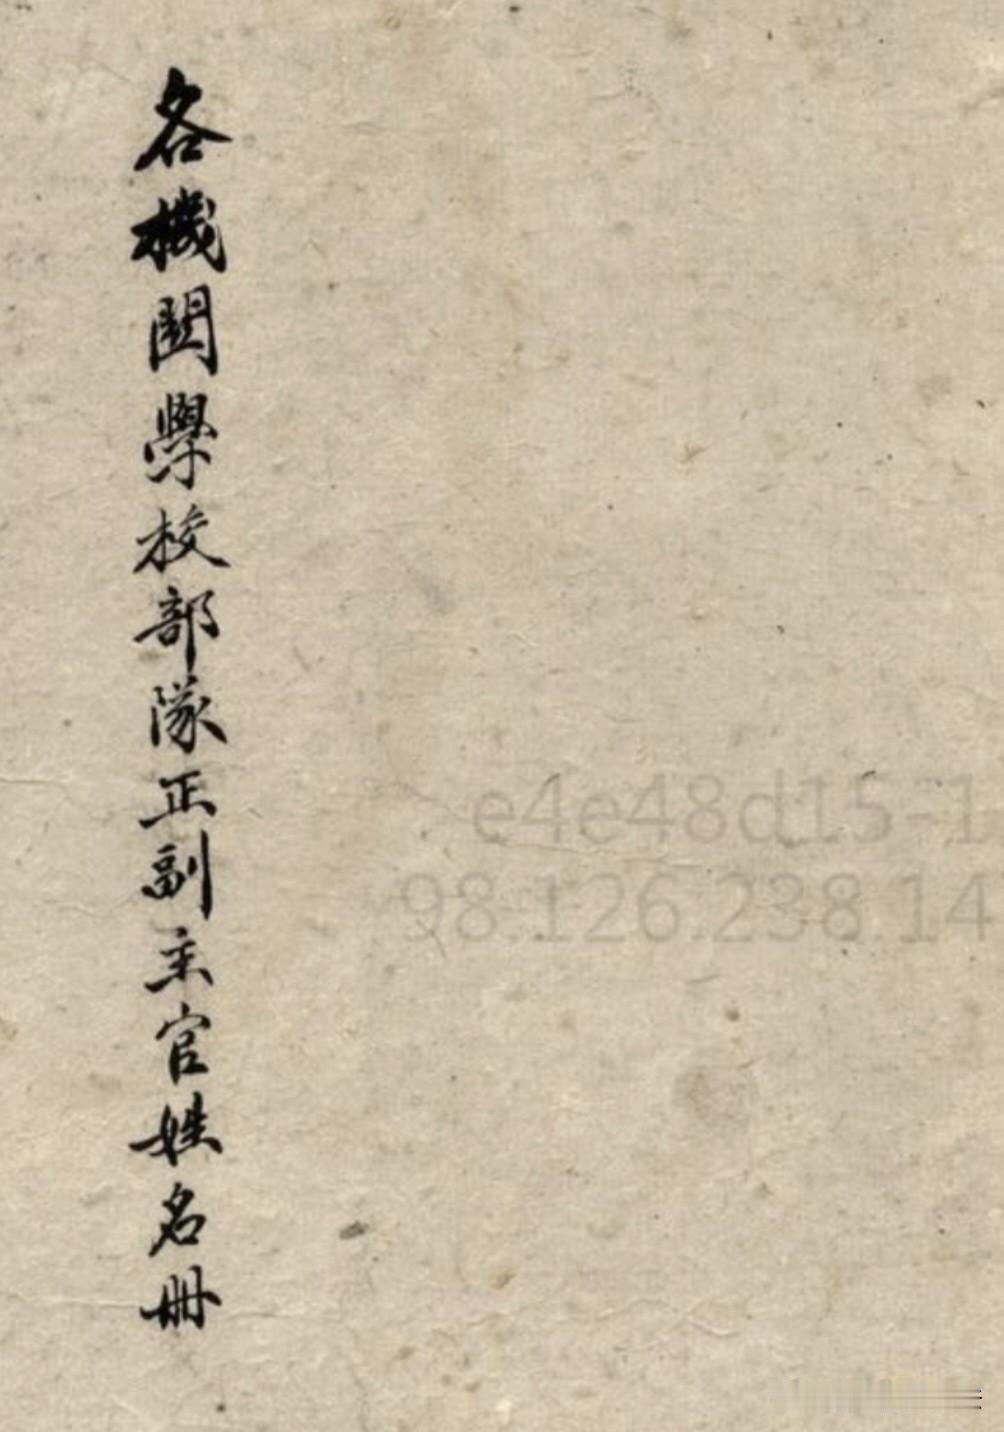 各機関學校部隊正副主官姓名冊
e4e48d15-1
98.126.238.14